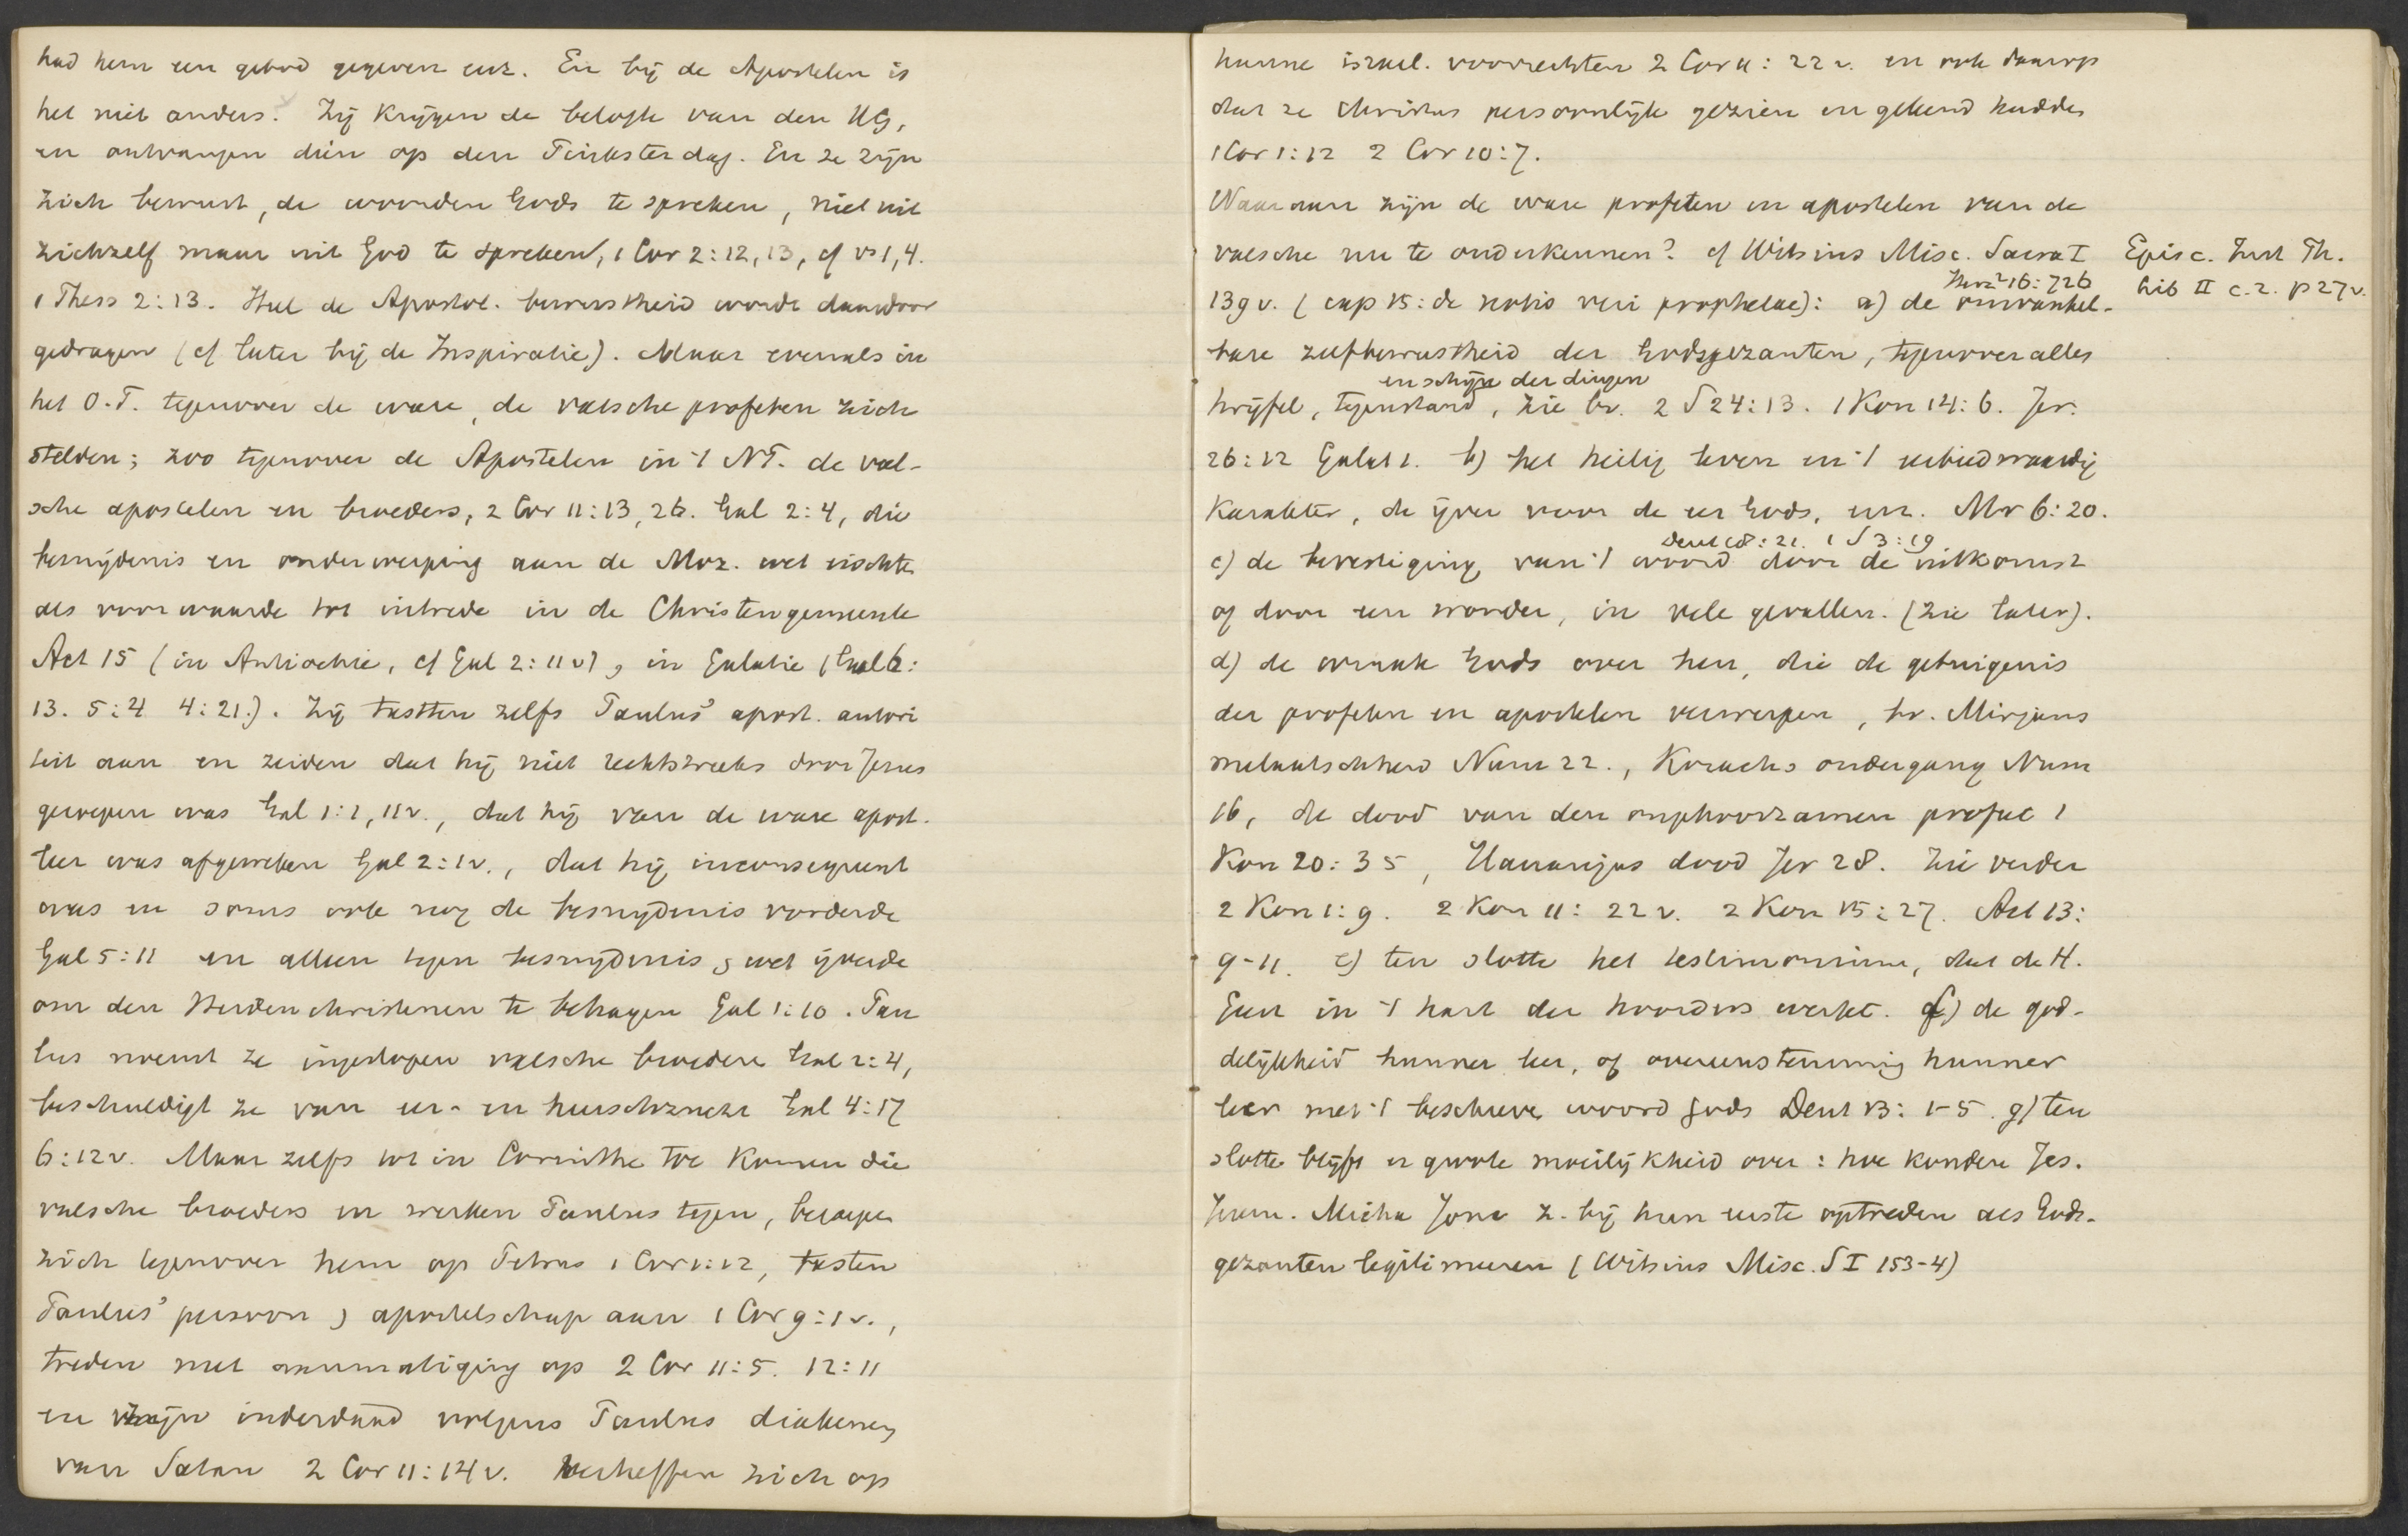 had hem een gebod gegeven enz. En bij de Apostelen is
het niet anders. Zij krijgen de belofte van den HG,
en ontvangen dien op den Pinksterdag. En ze zijn
zich bewust, de woorden Gods te spreken, niet uit
zichzelf maar uit God te spreken, 1 Cor 2:12, 13, cf vs 1, 4.
1 Thess 2:13. Heel de Apostol. bewustheid wordt daardoor
gedragen (cf later bij de Inspiratie). Maar evenals in
het O.T. tegenover de ware, de valsche profeten zich
stelden; zoo tegenover de Apostelen in 't NT. de val-
sche apostelen en broeders, 2 Cor 11:13, 26. Gal 2:4, die
besnijdenis en onderwerping aan de Moz. wet eischten
als voorwaarde tot intrede in de Christengemeente
Act 15 (in Antiochie, cf Gal 2:11v), in Galatie (Gal 6:
13. 5:4 4:21.). Zij tastten zelfs Paulus' apost. autori
teit aan en zeiden dat hij niet rechtstreeks door Jezus
geroepen was Gal 1:1, 11v., dat hij van de ware apost.
leer was afgeweken Gal 2:1v., dat hij inconsequent
was en soms ook nog de besnijdenis vorderde
Gal 5:11 en alleen tegen besnijdenis & wet ijverde
om den Heidenchristenen te behagen Gal 1:10. Pau
lus noemt ze ingeslopen valsche broedere Gal 2:4,
beschuldigt ze van eer- en heerschzucht Gal 4:17
6:12v. Maar zelfs tot in Corinthe toe komen die
valsche broeders en werken Paulus tegen, beroepen
zich tegenover hem op Petrus 1 Cor 1:12, tasten
Paulus' persoon & apostelschap aan 1 Cor 9:1v.,
treden met aanmatiging op 2 Cor 11:5. 12:11
en zijn inderdaad volgens Paulus diakenen
van Satan 2 Cor 11:14v. Verheffen zich op
hunne israel. voorrechten 2 Cor 11:22v. en ook daarop
dat ze Christus persoonlijk gezien en gekend hadden
1 Cor 1:12 2 Cor 10:7.
Waaraan zijn de ware profeten en apostelen van de
valsche nu te onderkennen? cf Witsius Misc. Sacra I
Episc. Inst Th.
Lib II c.2. p 27v.
Herz² 16:726
139v. (cap 15: de notis veri prophetae): a) de onwankel-
bare zelfbewustheid der Godsgezanten, tegenover alles
en schijn der dingen
twijfel, tegenstand, zie bv. 2 S 24:13. 1 Kon 14:6. Jer.
26:12 Galat 1. b) het heilig leven en 't eerbiedwaardig
karakter, de ijver voor de eer Gods, enz. Mr 6:20.
Deut 18:21. 1 S 3:19
c) de bevestiging van 't woord door de uitkomst
of door een wonder, in vele gevallen. (zie later).
d) de wraak Gods over hen, die de getuigenis
der profeten en apostelen verwerpen, bv. Mirjams
melaatschheid Num 22., Korachs ondergang Num
16, de dood van den ongehoorzamen profeet 1
Kon 20:35, Hananjas dood Jer 28. Zie verder
2 Kon 1:9. 2 Kon 11:22v. 2 Kon 15:27. Act 13:
9-11. e) ten slotte het testimonium, dat de H.
Geest in 't hart der hoorders werkt. f) de god-
delijkheid hunner leer, of overeenstemming hunner
leer met 't beschreven woord Gods Deut 13:1-5. g) ten
slotte blijft er groote moeilijkheid over: hoe konden Jes.
Jerem. Micha Jona z. bij hun eerste optreden als Gods-
gezanten legitimeeren (Witsius Misc. S I 153-4)